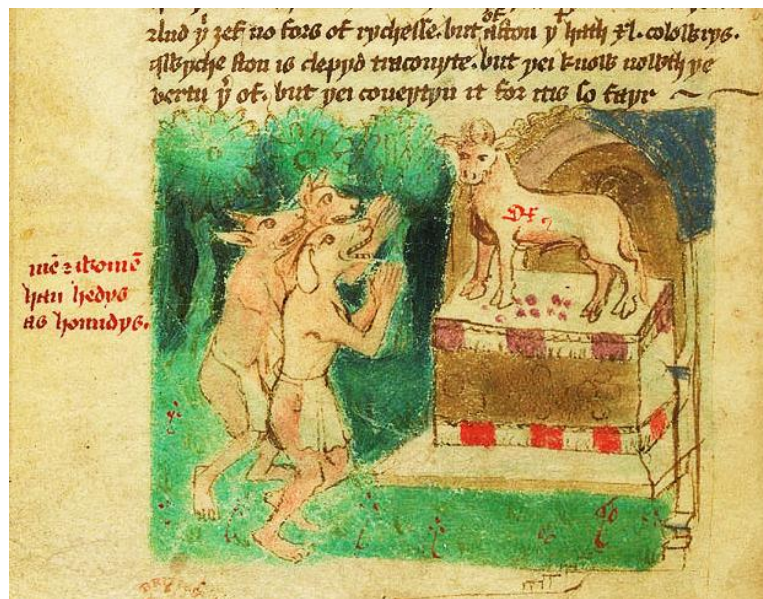 And þer zef no fors of rychesse. but of a ston þt hath xl. colowrys.
qwyche ston is clepyd traconyte. but þei know nowth þe
vertu þer of. but þei coueytyn it for itis so fayr
mē & womē
han hedys
as houndys.